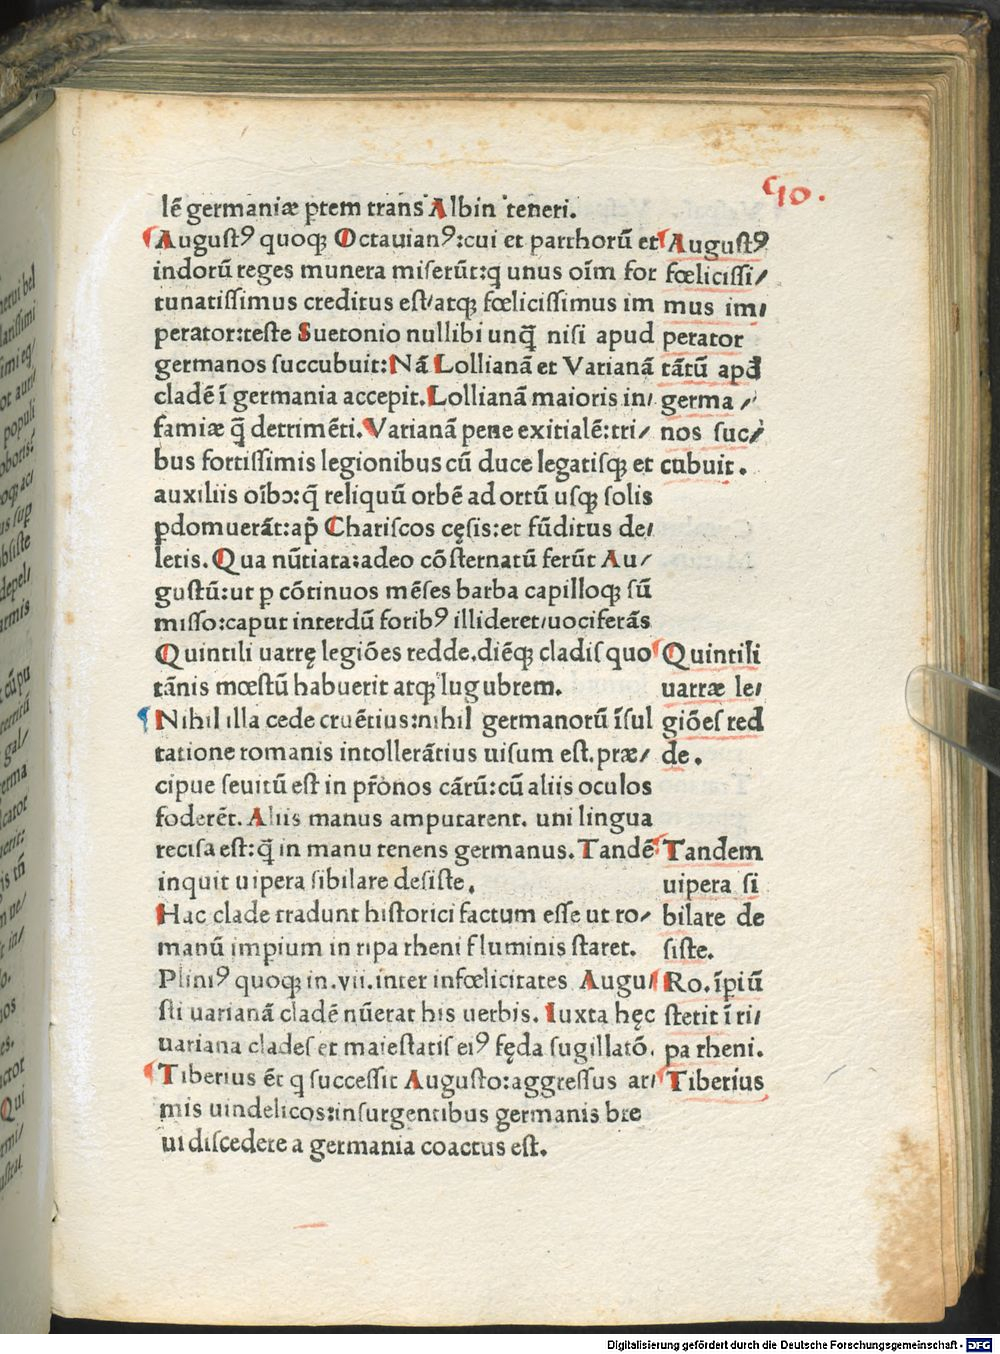 910.
lē germaniæ ꝑtem trans Albin teneri.
Auguſtꝰ quoqꝫ Octauianꝰ:cui et parthorū et
indorū reges munera miſerūt:q unus oīm for
tunatiſſimus creditus eſt/atqꝫ fœliciſſimus im
perator:teſte Suetonio nullibi unq̄ niſi apud
germanos ſuccubuit:Nā Lollianā et Varianā
cladē ī germania accepit.Lollianā maioris in/
famiæ q̄ detrimēti.Varianā pene exitialē:tri/
bus fortiſſimis legionibus cū duce legatiſqꝫ et
auxiliis oībꝰ:q̄ reliquū orbē ad ortū uſqꝫ ſolis
ꝑdomuerāt:ap̄ Chariſcos cęſis:et fūditus de/
letis.Qua nūtiata:adeo cōſternatū ferūt Au/
guſtū:ut ꝑ cōtinuos mēſes barba capilloqꝫ ſū
miſſo:caput interdū foribꝰ illideret/uociferās
Quintili uarrę legiōes redde.diēqꝫ cladiſ quo
tānis mœſtū habuerit atqꝫ lugubrem.
Nihil illa cede cruētius:nihil germanorū īſul
tatione romanis intollerātius uiſum eſt.præ/
cipue ſeuitū eſt in pr̄onos cārū:cū aliis oculos
foderēt. Aliis manus amputarent. uni lingua
reciſa eſt:q̄ in manu tenens germanus.Tandē
inquit uipera ſibilare deſiſte.
Hac clade tradunt hiſtorici factum eſſe ut ro/
manū impium in ripa rheni fluminis ſtaret.
Pliniꝰ quoqꝫ in.vii.inter infœlicitates Augu/
ſti uarianā cladē nūerat his uerbis. Iuxta hęc
uariana clades et maieſtatis eiꝰ fęda ſugillatō.
Tiberius ēt q ſucceſſit Auguſto:aggreſſus ar/
mis uindelicos:inſurgentibus germanis bre
ui diſcedere a germania coactus eſt.
Auguſtꝰ
fœliciſſi/
mus im/
perator
tātū apd
germa/
nos ſuc/
cubuit.
Quintili
uarræ le/
giōeſ red
de.
Tandem
uipera ſi
bilare de
ſiſte.
Ro.īpiū
ſtetit ī ri/
pa rheni.
Tiberius
Digitalisierung gefördert durch die Deutsche Forschungsgemeinschaft - DFG